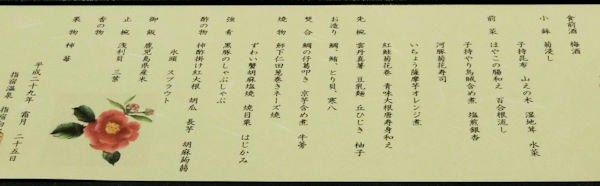 食前酒　梅酒
小鉢　菊浸し
子持昆布　山えの木　湿地茸　水菜
前菜　はやこの腸和え　百合根流し
子持やり烏賊含め煮　塩煎銀杏
河豚菊花寿司
いちょう薩摩芋オレンジ煮
紅鮭菊花巻　青味大根唐寿身和え
先椀　雲丹真薯　豆乳麺　丘ひじき　柚子
お造り　鯛、鮪、とり貝、寒八
焚合　鯛の仔葛叩き　京芋含め煮　牛蒡
焼物　鰤下仁田葱巻きチーズ焼
ずわい蟹胡麻塩焼　焼目栗　はじかみ
強肴　黒豚のしゃぶしゃぶ
酢の物　柿酢掛け紅大根　胡瓜　長芋　胡麻蒟蒻
氷頭　スプラウト
御飯　鹿児島県産米
止椀　浅利貝　三葉
香の物
果物　柿　苺
平成二十九年　霜月　二十五日
指宿温泉　指宿